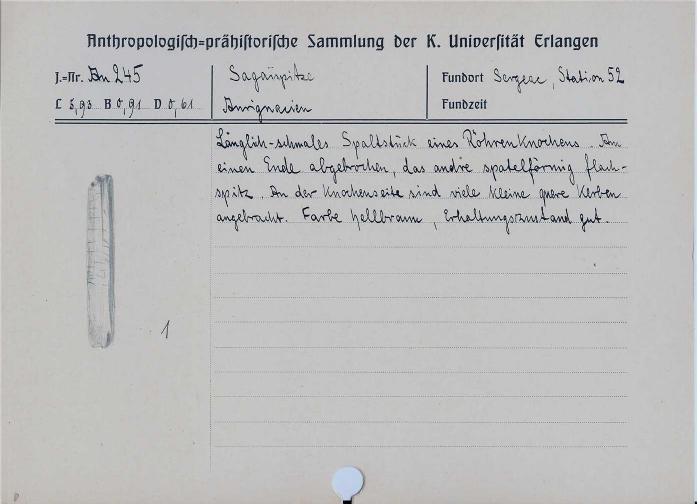 Anthropologisch=prähistorische Sammlung der K. Universität Erlangen
J.=Nr. An 245
Sagaispitze
Fundort Sergeac, Station 52
L 5,93 B 0,91 D 0,61
Aurignacien
Fundzeit
Länglich-schmales Spaltstück eines Röhrenknochens. Am
einen Ende abgebrochen, das andre spatelförmig flach-
spitz. An der Knochenseite sind viele kleine quere Kerben
angebracht. Farbe hellbraun, Erhaltungszustand gut.
1